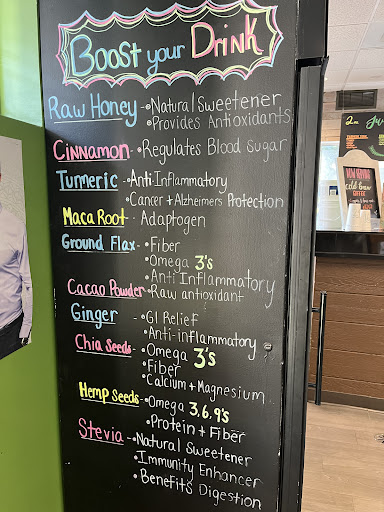 Boost your Drink
Raw Honey - • Natural Sweetener
• Provides Antioxidants
Cinnamon - • Regulates Blood Sugar
Turmeric - • Anti Inflammatory
• Cancer + Alzheimers Protection
Maca Root - Adaptogen
Ground Flax - • Fiber
• Omega 3's
• Anti Inflammatory
Cacao Powder • Raw antioxidant
Ginger - • GI Relief
• Anti-inflammatory
Chia Seeds - • Omega 3's
• Fiber
• Calcium + Magnesium
Hemp Seeds - • Omega 3,6,9's
• Protein + Fiber
Stevia - • Natural Sweetener
• Immunity Enhancer
• Benefits Digestion
NOW SERVING
cold brew
COFFEE